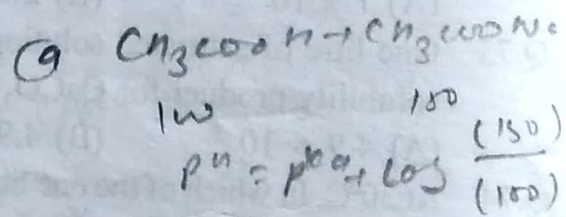 (9 CH3COOH + CH3COONa
100 150
pH = pka + log (150)
(100)